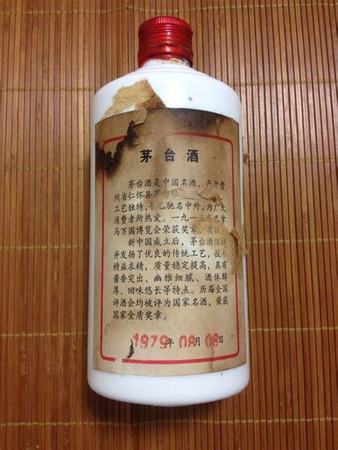 茅台酒
茅台酒是中国名酒,产于贵
州省仁怀县茅
工艺独特,早已驰名中外,为广大
消费者所热爱。一九一五年巴拿
马万国博览会荣获奖章、奖
新中国成立后,茅台酒
并发扬了优良的传统工艺,技术
精益求精,质量稳定提高,具有
酱香突出、幽雅细腻、酒体醇
厚、回味悠长等特点。历届全国
评酒会均被评为国家名酒,荣获
国家金质奖章。
1979年08月08日